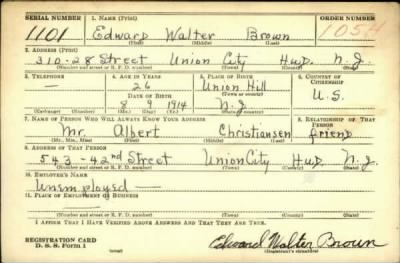 SERIAL NUMBER 1. NAME (Print) ORDER NUMBER
1101 Edward Walter Brown 1054
(First) (Middle) (Last)
2. ADDRESS (Print)
310-28 Street Union City Hud. N.J.
(Number and street or R. F. D. number) (Town) (County) (State)
3. TELEPHONE 4. AGE IN YEARS 5. PLACE OF BIRTH 6. COUNTRY OF CITIZENSHIP
— 26 Union Hill
DATE OF BIRTH (Town or county) U.S.
8 9 1914 N.J.
(Exchange) (Number) (Mo.) (Day) (Yr.) (State or country)
7. NAME OF PERSON WHO WILL ALWAYS KNOW YOUR ADDRESS 8. RELATIONSHIP OF THAT PERSON
Mr. Albert Christiansen friend
(Mr., Mrs., Miss) (First) (Middle) (Last)
9. ADDRESS OF THAT PERSON
543-42nd Street Union City Hud. N.J.
(Number and street or R. F. D. number) (Town) (County) (State)
10. EMPLOYER'S NAME
Unemployed —
11. PLACE OF EMPLOYMENT OR BUSINESS
—
(Number and street or R. F. D. number) (Town) (County) (State)
I AFFIRM THAT I HAVE VERIFIED ABOVE ANSWERS AND THAT THEY ARE TRUE.
REGISTRATION CARD Edward Walter Brown
D. S. S. Form 1 (Registrant's signature)